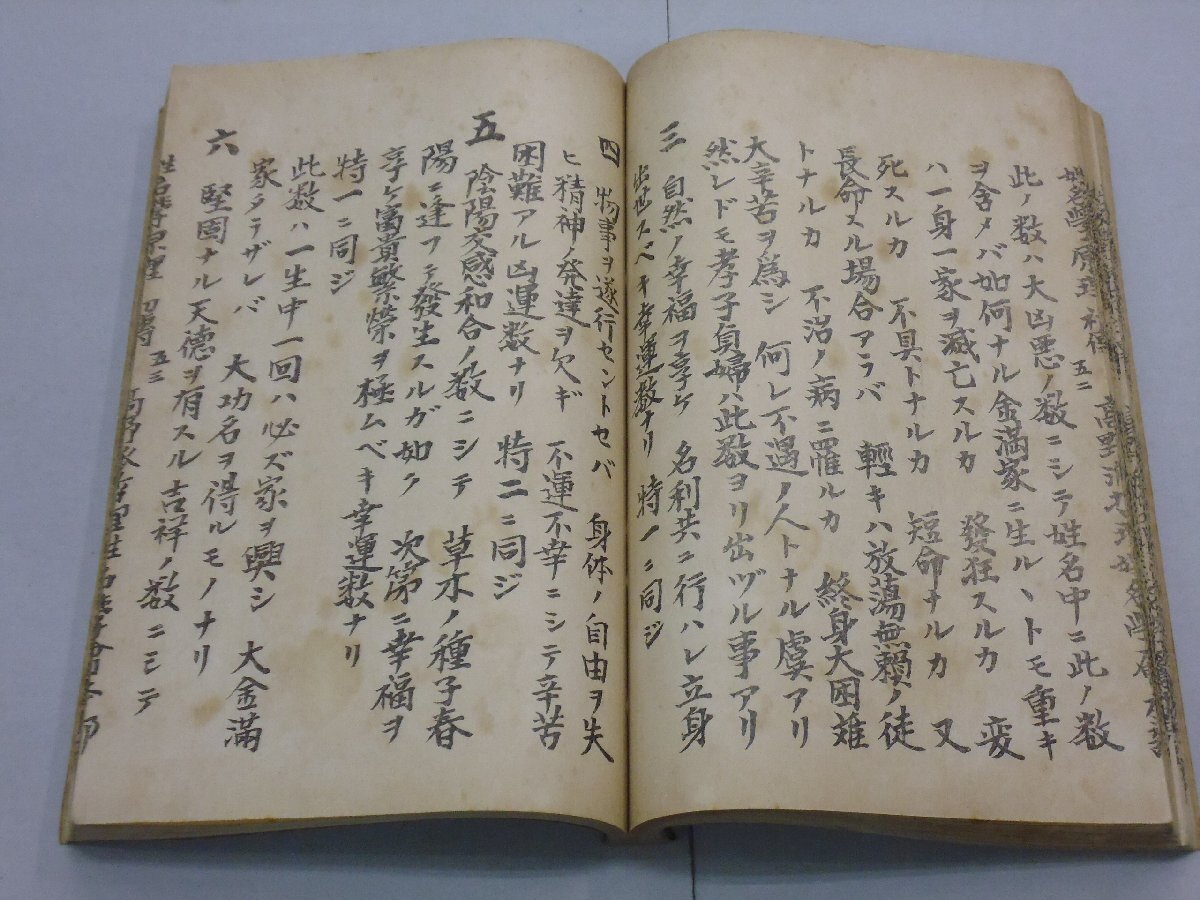 姓名學原理秘傳 五二 高野
此ノ数ハ大凶悪ノ数ニシテ姓名中ニ此ノ数
ヲ含メバ如何ナル金満家ニ生ルヽトモ重キ
ハ一身一家ヲ滅亡スルカ 發狂スルカ 変
死スルカ 不具トナルカ 短命ナルカ 又
長命スル場合アラバ 輕キハ放蕩無頼ノ徒
トナルカ 不治ノ病ニ罹ルカ 終身大困难
大辛苦ヲ為シ 何レ不遇ノ人トナル虞アリ
然レドモ孝子貞婦ハ此数ヨリ出ヅル事アリ
三 自然ノ幸福ヲ享ケ 名利共ニ行ハレ立身
出世スベキ幸運数ナリ 特ノニ同ジ
四 物事ヲ遂行セントセバ 身体ノ自由ヲ失
ヒ精神ノ発達ヲ欠ギ 不運不幸ニシテ辛苦
困難アル凶運数ナリ 特二ニ同ジ
五 陰陽交感和合ノ数ニシテ 草木ノ種子春
陽ニ逢フテ發生スルガ如ク 次第ニ幸福ヲ
享ケ富貴繁榮ヲ極ムベキ幸運数ナリ
特一ニ同ジ
此数ハ一生中一回ハ必ズ家ヲ興シ 大金満
家タラザレバ 大功名ヲ得ルモノナリ
六 堅固ナル天德ヲ有スル吉祥ノ数ニシテ
姓名學原理 秘傳 五三 高野